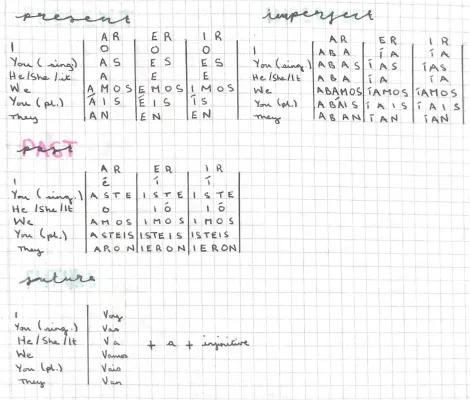 present
AR ER IR
I O O O
You (sing) AS ES ES
He/She/it A E E
We AMOS EMOS IMOS
You (pl.) ÁIS ÉIS ÍS
They AN EN EN
imperfect
AR ER IR
I ABA ÍA ÍA
You (sing.) ABAS ÍAS ÍAS
He/She/It ABA ÍA ÍA
We ABAMOS ÍAMOS ÍAMOS
You (pl.) ABAIS ÍAIS ÍAIS
They ABAN ÍAN ÍAN
PAST
past
AR ER IR
I É Í Í
You (sing.) ASTE ISTE ISTE
He/She/It O IÓ IÓ
We AMOS IMOS IMOS
You (pl.) ASTEIS ISTEIS ISTEIS
They ARON IERON IERON
future
I Voy
You (sing.) Vas
He/She/It Va + a + infinitive
We Vamos
You (pl.) Vais
They Van